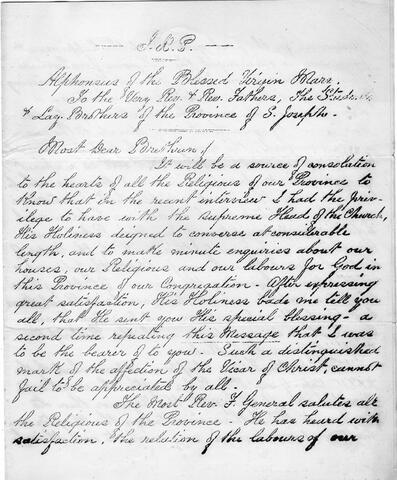 J. X. P.
Alphonsus of the Blessed Virgin Mary.
To the Very Rev. & Rev. Fathers, The Students
& Lay Brothers of the Province of S. Joseph.
Most Dear Brethren,
It will be a source of consolation
to the hearts of all the Religious of our Province to
know that in the recent interview I had the Priv-
ilege to have with the Supreme Head of the Church,
His Holiness deigned to converse at considerable
length, and to make minute enquiries about our
houses, our Religious and our labours for God in
this Province of our Congregation - After expressing
great satisfaction, His Holiness bade me tell you
all, that He sent you His special blessing - a
second time repeating this Message that I was
to be the bearer of to you - Such a distinguished
mark of the affection of the Vicar of Christ, cannot
fail to be appreciated by all.
The Most Rev. F. General salutes all
the Religious of the Province - He has heard with
satisfaction, the relation of the labours of our